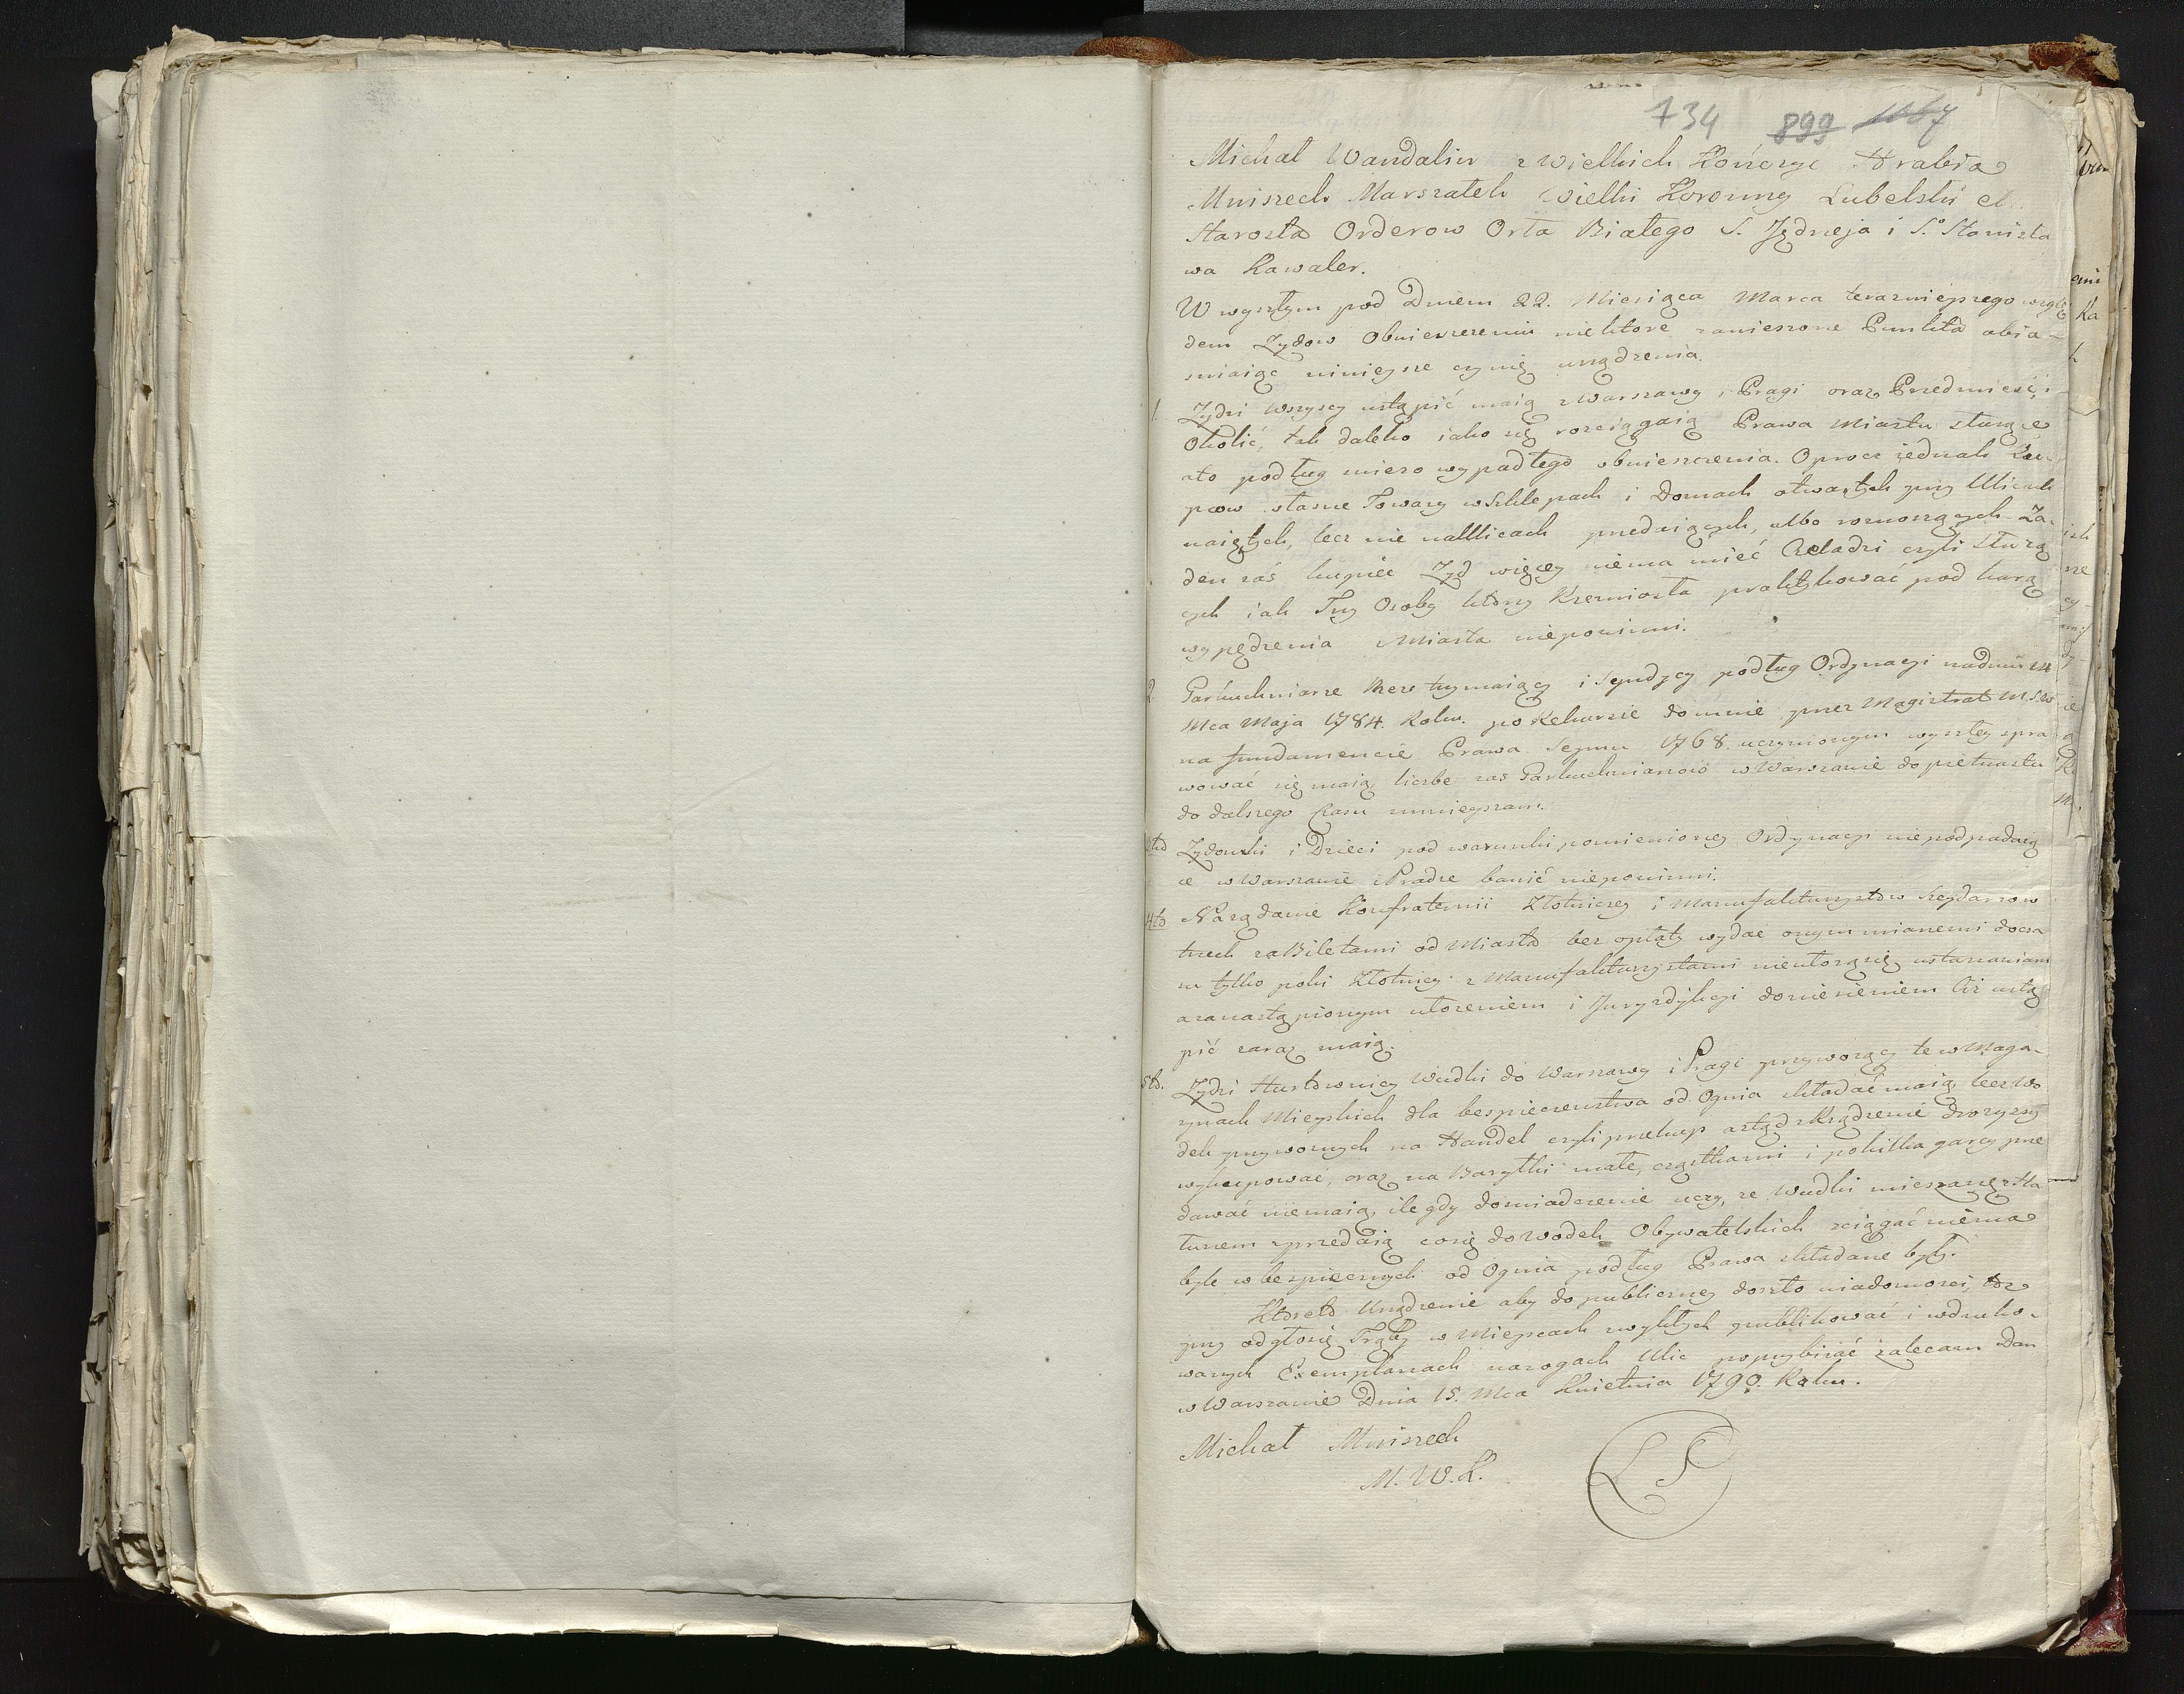 734 899 1067
Michał Wandalin z Wielkich Kończyc Hrabia
Mniszech Marszałek Wielki Koronny Lubelski et
Starosta Orderow Orła Białego S. Jędrzeja i S. Stanisła
wa Kawaler.
W wyszłym pod Dniem 22. Miesiąca Marca teraznieyszego wzglę
dem Zydow Obwieszczeniu niektore zawieszone Punkta obia-
sniaiąc ninieysze czynię urządzenia.
1. Zydzi wszyscy ustąpić maią z Warszawy, Pragi oraz Przedmieść, i
Okolić, tak daleko iako się rozciągaią Prawa Miastu służące
a to podług wypadłego obwieszczenia. Oprocz iednak Ku-
pcow własne Towary w Sklepach i Domach otwartych przy Ulicach
naiętych, lecz nie na Ulicach przedaiących, albo roznoszących Ża-
den zaś kupiec Zyd więcey niema mieć Czeladzi czyli służą
cych iak Trzy Osoby ktorzy Rzemiosła praktykować pod karą
wypędzenia z Miasta niepowinni.
2. Garkuchniarze Szenk trzymaiący i Szpudzcy podług Ordynacyi nadniu 24
Mca Maja 1784. Roku. po Rekursie do mnie przez Magistrat M. S. W
na fundamencie Prawa Seymu 1768. uczynionym wyszłey spra-
wować się maią, liczbe zas Garkuchniarzow w Warszawie do pietnastu
do dalszego Czasu zmnieyszam.
3tio Zydowki i Dzieci pod warunki pomienioney Ordynacyi niepodpadaią
ce w Warszawie i Pradze bawić niepowinni.
4to Na żądanie Konfraternii Złotniczey i Manufakturzystow Szeydarzow
trzech za Biletami od Miasta bez opłaty wydać onym mianemi do cza
su tylko poki Złotnicy z Manufakturzystami nieułożą się, ustanawiam
a za nastąpionym ułożeniem i Juryzdykcyi doniesieniem Ciż ustą
pić zaraz maią.
5to. Zydzi Hurtownicy Wudki do Warszawy i Pragi przywożący te w Maga-
zynach Mieyskich dla bespieczenstwa od Ognia składać maią, lecz Wo
dek przywoznych na Handel czyli przekup a ztąd zrządzenie drożyzny
wykupować, oraz na Baryłki małe, cząstkami i po kilka garcy prze
dawać niemaią, ile gdy doswiadczenie uczy, ze Wudki mieszane z Ha
łunem sprzedaią co się do wodek Obywatelskich sciągać niema
byle w bezpiecznych od Ognia podług Prawa składane były.
Ktoreto Urządzenie aby do publiczney doszło wiadomosci, toz
przy odgłosie Trąby w Mieyscach zwykłych publikować i w druko-
wanych Exemplarzach na rogach Ulic poprzybiiać zalecam Dan
w Warszawie Dnia 15. Mca Kwietnia 1790. Roku.
Michał Mniszech
M. W. K.
LS